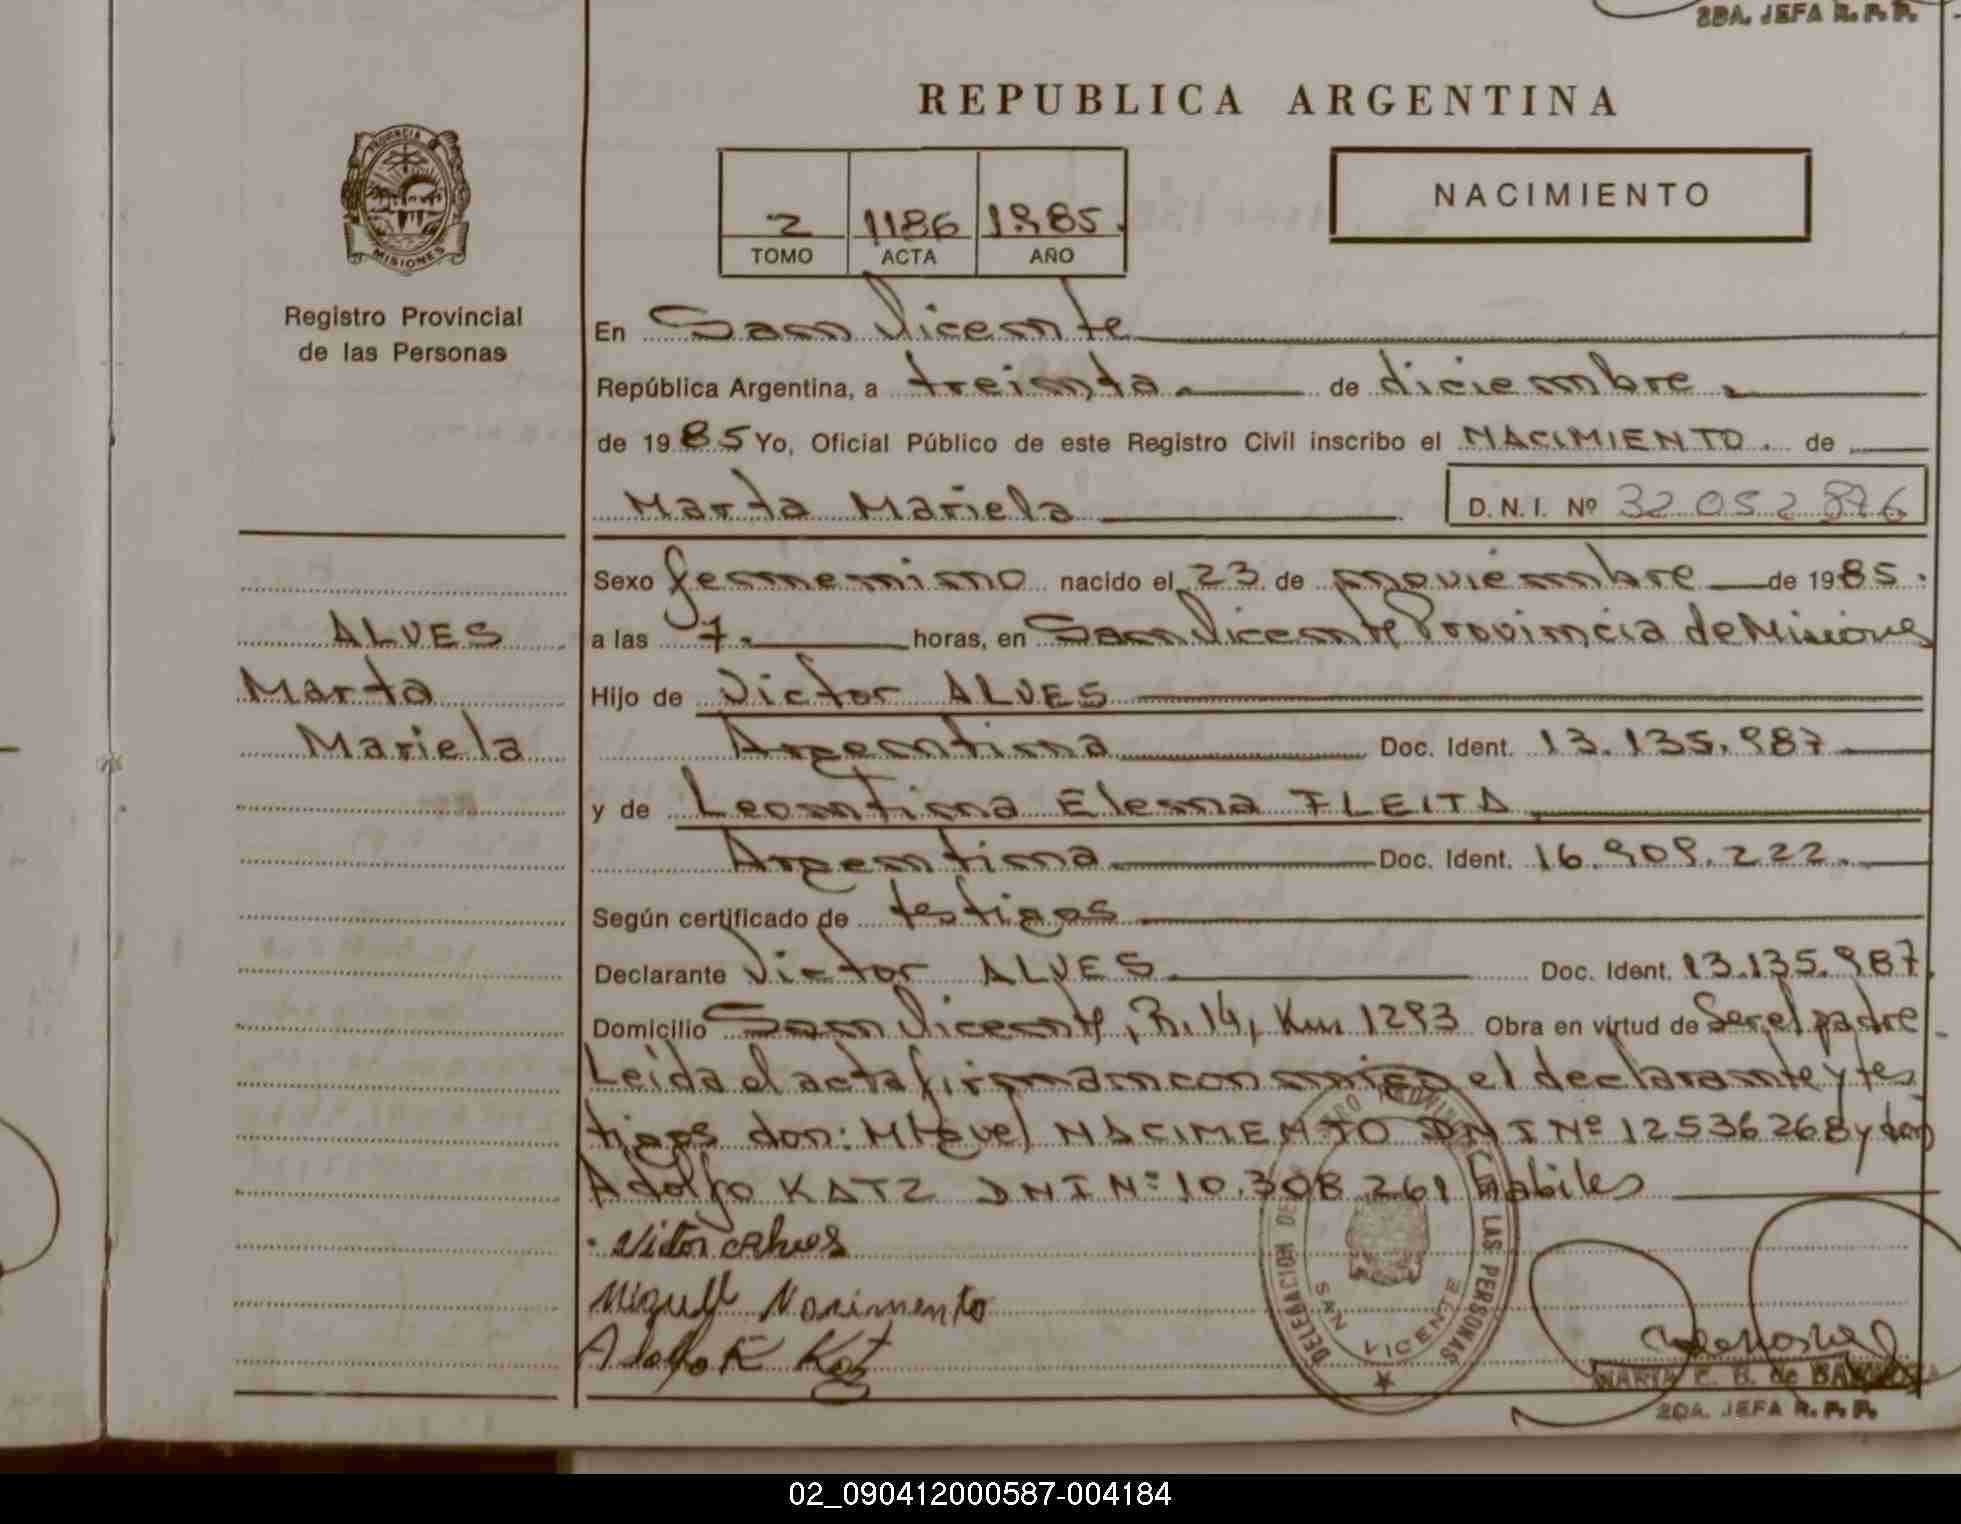 2DA. JEFA R. P. P.
REPUBLICA ARGENTINA
PROVINCIA
MISIONES
2 1186 1985.
TOMO ACTA AÑO
NACIMIENTO
Registro Provincial
de las Personas
En San Vicente
República Argentina, a treinta. de diciembre.
de 1985 Yo, Oficial Público de este Registro Civil inscribo el NACIMIENTO. de
Marta Mariela D. N. I. Nº 32 052 876
Sexo femenino nacido el 23 de noviembre de 1985.
ALVES
a las 7. horas, en San Vicente Provincia de Misiones
Marta
Hijo de Victor ALVES
Mariela
Argentina Doc. Ident. 13.135.987
y de Leontina Elena FLEITA
Argentina Doc. Ident. 16.909.222.
Según certificado de testigos
Declarante Victor ALVES Doc. Ident. 13.135.987
Domicilio San Vicente, R. 14, Km 1293 Obra en virtud de Ser el padre
Leida el acta firman con migo el declarante y tes
tigos don: Miguel NACIMENTO DNI Nº 12536268 y don
Adolfo KATZ DNI Nº 10.308.261 Habiles
Victor Alves
Miguel Nacimento
Adolfo K Katz
DELEGACION DE LAS PERSONAS
SAN VICENTE
MARIA E. B. de
2DA. JEFA R. P. P.
02_090412000587-004184